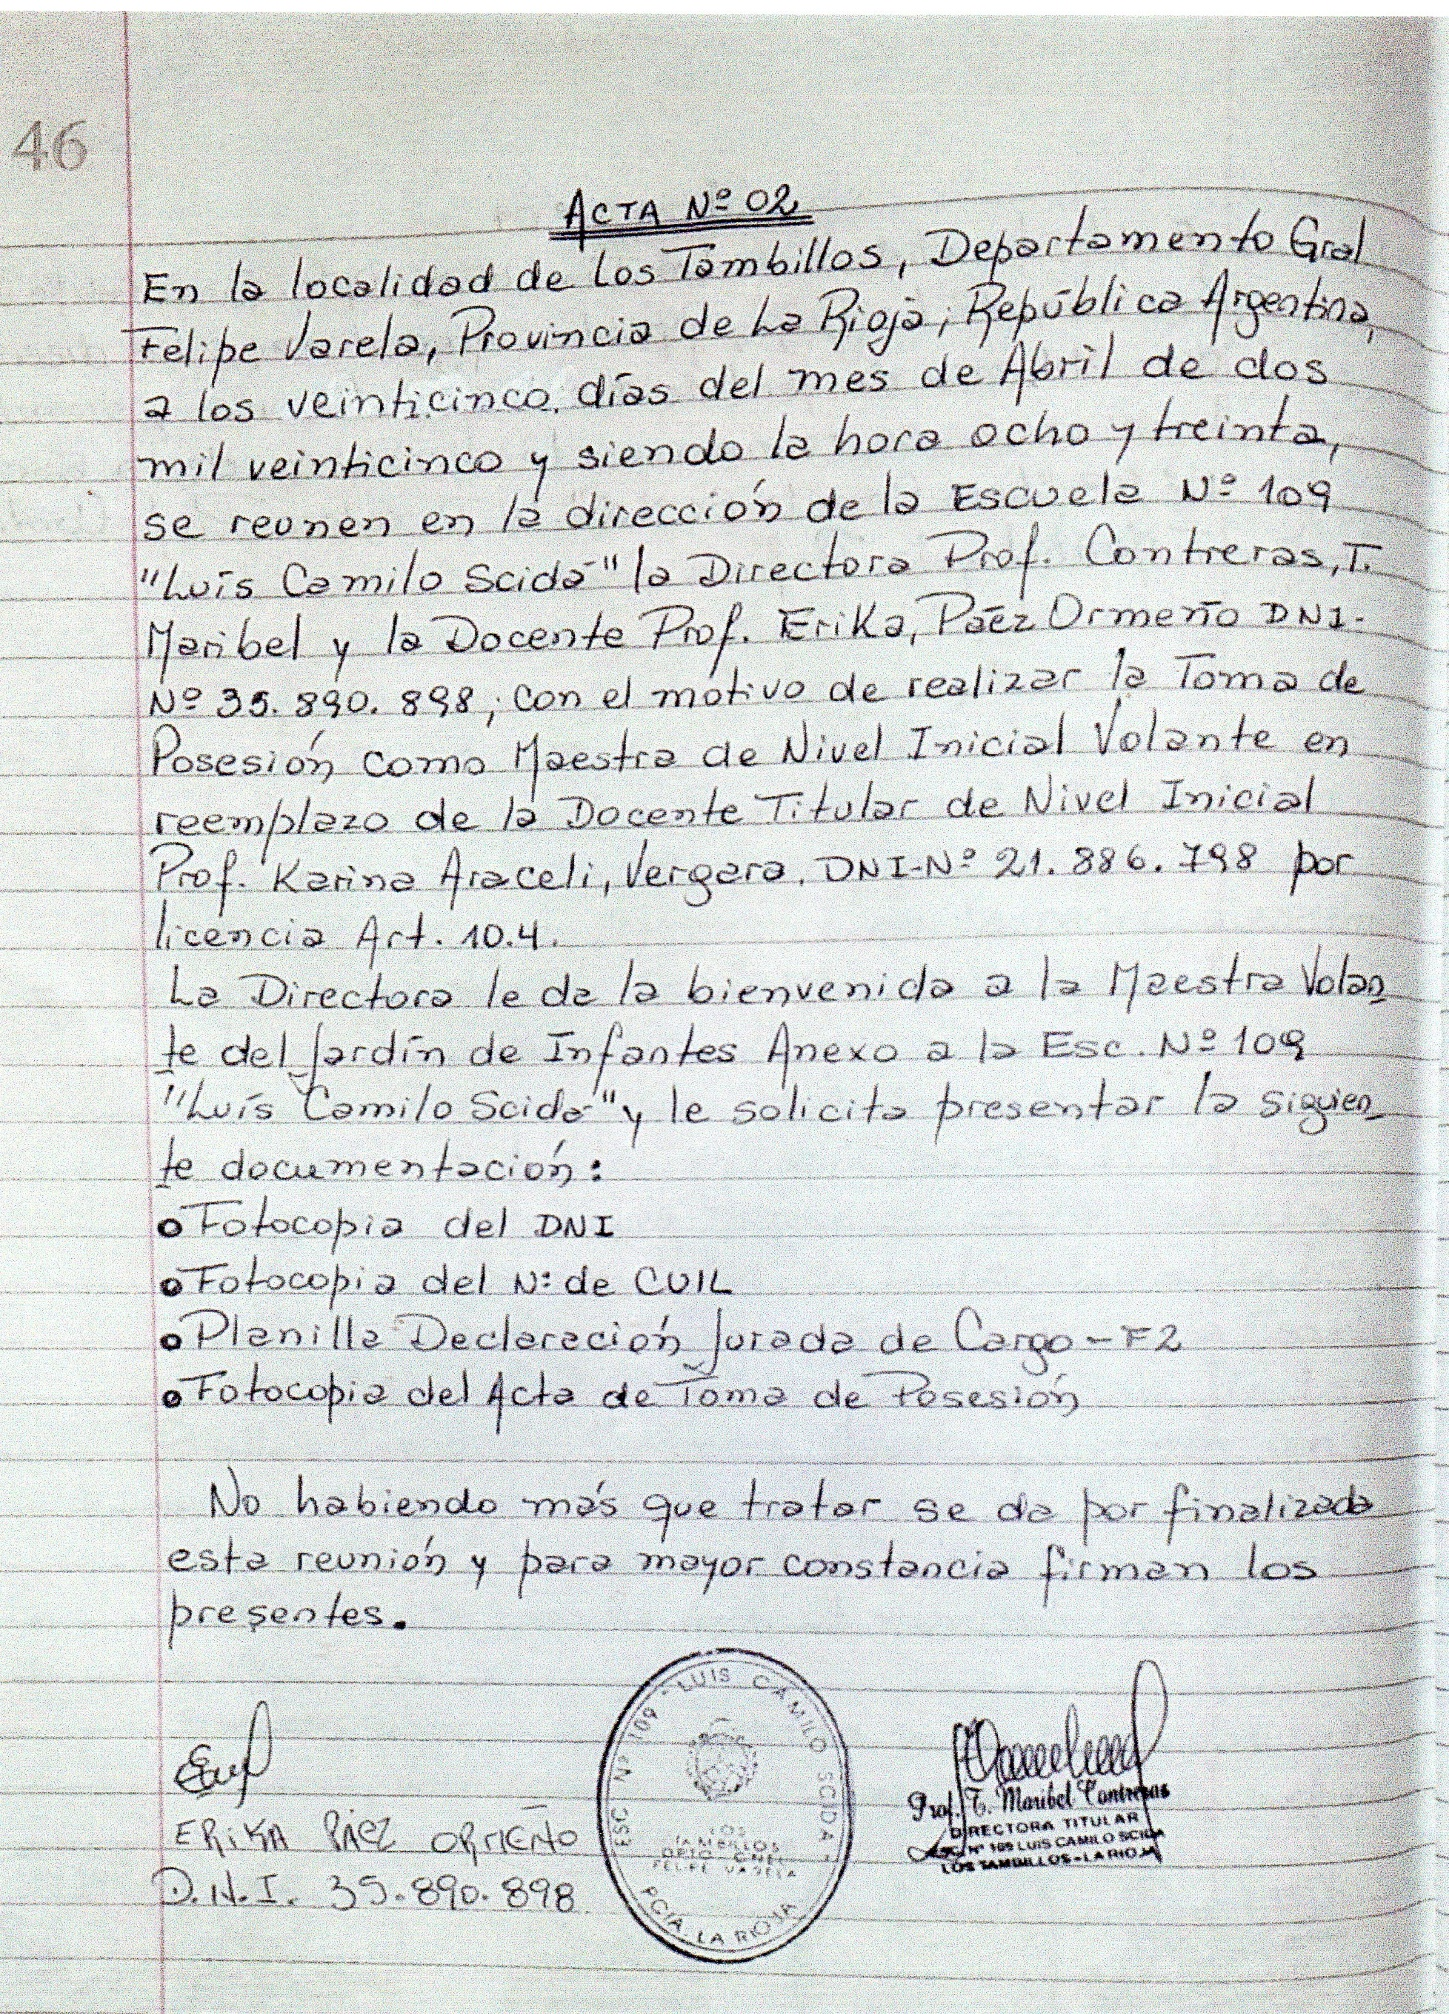 46
ACTA Nº 02
En la localidad de Los Tambillos, Departamento Gral
Felipe Varela, Provincia de La Rioja; República Argentina,
a los veinticinco días del mes de Abril de dos
mil veinticinco y siendo la hora ocho y treinta,
se reunen en la dirección de la Escuela Nº 109
"Luís Camilo Scida" la Directora Prof. Contreras, T.
Maribel y la Docente Prof. Erika, Páez Ormeño DNI-
Nº 35.890.898; con el motivo de realizar la Toma de
Posesión como Maestra de Nivel Inicial Volante en
reemplazo de la Docente Titular de Nivel Inicial
Prof. Karina Araceli, Vergara. DNI-Nº 21.886.798 por
licencia Art. 10.4.
La Directora le da la bienvenida a la Maestra Volan
te del Jardín de Infantes Anexo a la Esc. Nº 109
"Luís Camilo Scida" y le solicita presentar la siguien
te documentación:
• Fotocopia del DNI
• Fotocopia del Nº de CUIL
• Planilla Declaración Jurada de Cargo - F2
• Fotocopia del Acta de Toma de Posesión
No habiendo más que tratar se da por finalizada
esta reunión y para mayor constancia firman los
presentes.
ERIKA PÁEZ ORMEÑO
D.N.I. 35.890.898
ESC Nº 109 - LUIS CAMILO SCIDA -
LOS
TAMBILLOS
DPTO GNEL
FELIPE VARELA
PCIA. LA RIOJA
Prof. T. Maribel Contreras
DIRECTORA TITULAR
Nº 109 LUIS CAMILO SCIDA
LOS TAMBILLOS - LA RIOJA